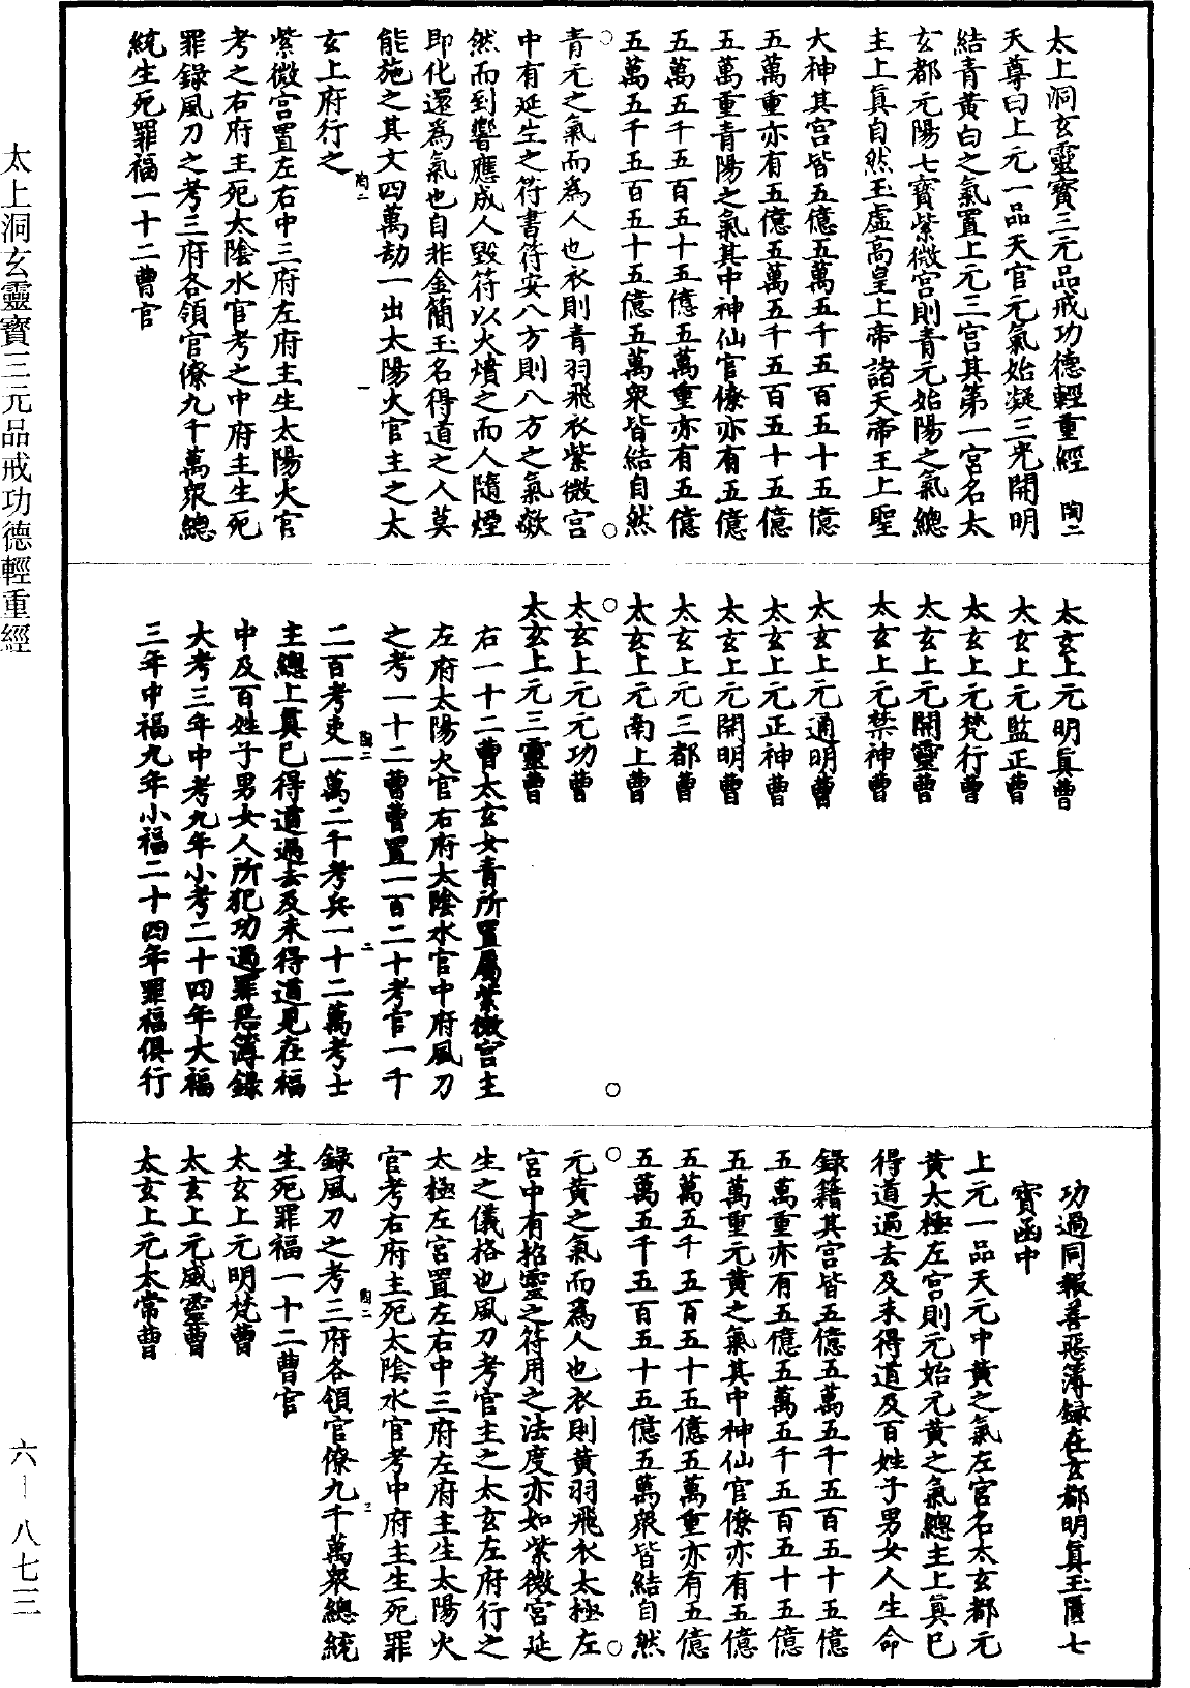 太上洞玄靈寶三元品戒功德輕重經　陶二
天尊曰上元一品天官元氣始凝三光開明
結青黃白之氣置上元三宮其第一宮名太
玄都元陽七寶紫微宮則青元始陽之氣總
主上真自然玉虛高皇上帝諸天帝王上聖
大神其宮皆五億五萬五千五百五十五億
五萬重亦有五億五萬五千五百五十五億
五萬重青陽之氣其中神仙官僚亦有五億
五萬五千五百五十五億五萬重亦有五億
五萬五千五百五十五億五萬衆皆結自然
青元之氣而為人也衣則青羽飛衣紫微宮
中有延生之符書符安八方則八方之氣歘
然而到響應成人毀符以火燌之而人隨煙
即化還為氣也自非金簡玉名得道之人莫
能施之其文四萬劫一出太陽火官主之太
陶二　一
玄上府行之
紫微宮置左右中三府左府主生太陽火官
考之右府主死太陰水官考之中府主生死
罪錄風刀之考三府各領官僚九千萬衆總
統生死罪福一十二曹官
太玄上元明真曹
太玄上元監正曹
太玄上元梵行曹
太玄上元開靈曹
太玄上元禁神曹
太玄上元通明曹
太玄上元正神曹
太玄上元開明曹
太玄上元三都曹
太玄上元南上曹
太玄上元元功曹
太玄上元三靈曹
右一十二曹太玄女青所置屬紫微宮主
左府太陽火官右府太陰水官中府風刀
之考一十二曹曹置一百二十考官一千
陶二　二
二百考吏一萬二千考兵一十二萬考士
主總上真已得道過去及未得道見在福
中及百姓子男女人所犯功過罪惡簿錄
大考三年中考九年小考二十四年大福
三年中福九年小福二十四年罪福俱行
功過同報善惡簿錄在玄都明真玉匱七
寶函中
上元一品天元中黃之氣左宮名太玄都元
黃太極左宮則元始元黃之氣總主上真已
得道過去及未得道及百姓子男女人生命
錄籍其宮皆五億五萬五千五百五十五億
五萬重亦有五億五萬五千五百五十五億
五萬重元黃之氣其中神仙官僚亦有五億
五萬五千五百五十五億五萬重亦有五億
五萬五千五百五十五億五萬衆皆結自然
元黃之氣而為人也衣則黃羽飛衣太極左
宮中有招靈之符用之法度亦如紫微宮延
生之儀格也風刀考官主之太玄左府行之
太極左宮置左右中三府左府主生太陽火
官考右府主死太陰水官考中府主生死罪
陶二　三
錄風刀之考三府各領官僚九千萬衆總統
生死罪福一十二曹官
太玄上元明梵曹
太玄上元威靈曹
太玄上元太常曹
太上洞玄靈寶三元品戒功德輕重經
六－八七三